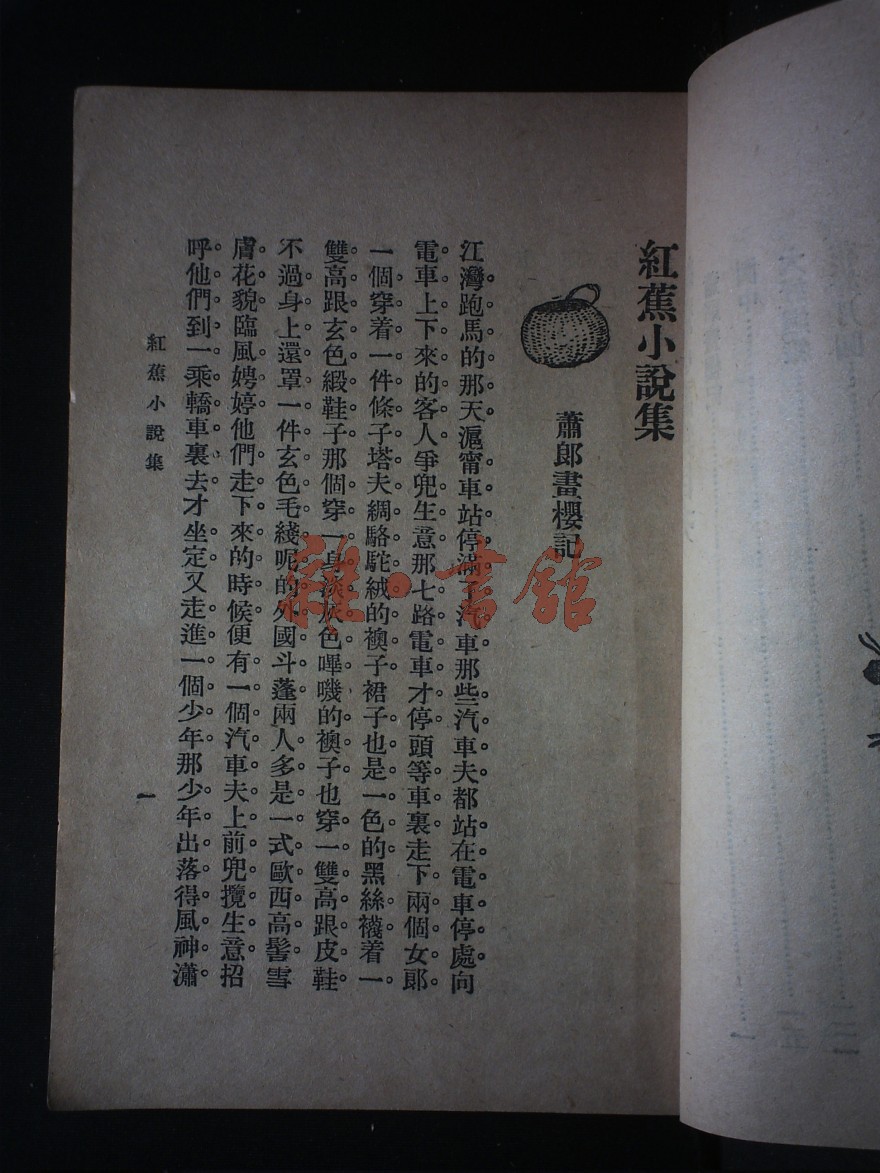 紅蕉小說集
蕭郎畫櫻記
江灣跑馬的那天。滬甯車站停滿了汽車。那些汽車夫都站在電車停處。向
電車上下來的客人爭兜生意。那七路電車才停。頭等車裏走下兩個女郎。
一個穿着一件條子塔夫綢駱駝絨的襖子。裙子也是一色的。黑絲襪着一
雙高跟玄色緞鞋子。那個穿一身淡灰色嗶嘰的襖子。也穿一雙高跟皮鞋。
不過身上還罩一件玄色毛綫呢的外國斗蓬。兩人多是一式歐西高髻。雪
膚花貌。臨風娉婷。他們走下來的時候。便有一個汽車夫上前兜攬生意。招
呼他們到一乘轎車裏去。才坐定。又走進一個少年。那少年出落得風神瀟
紅蕉小說集
一
雜·書舘